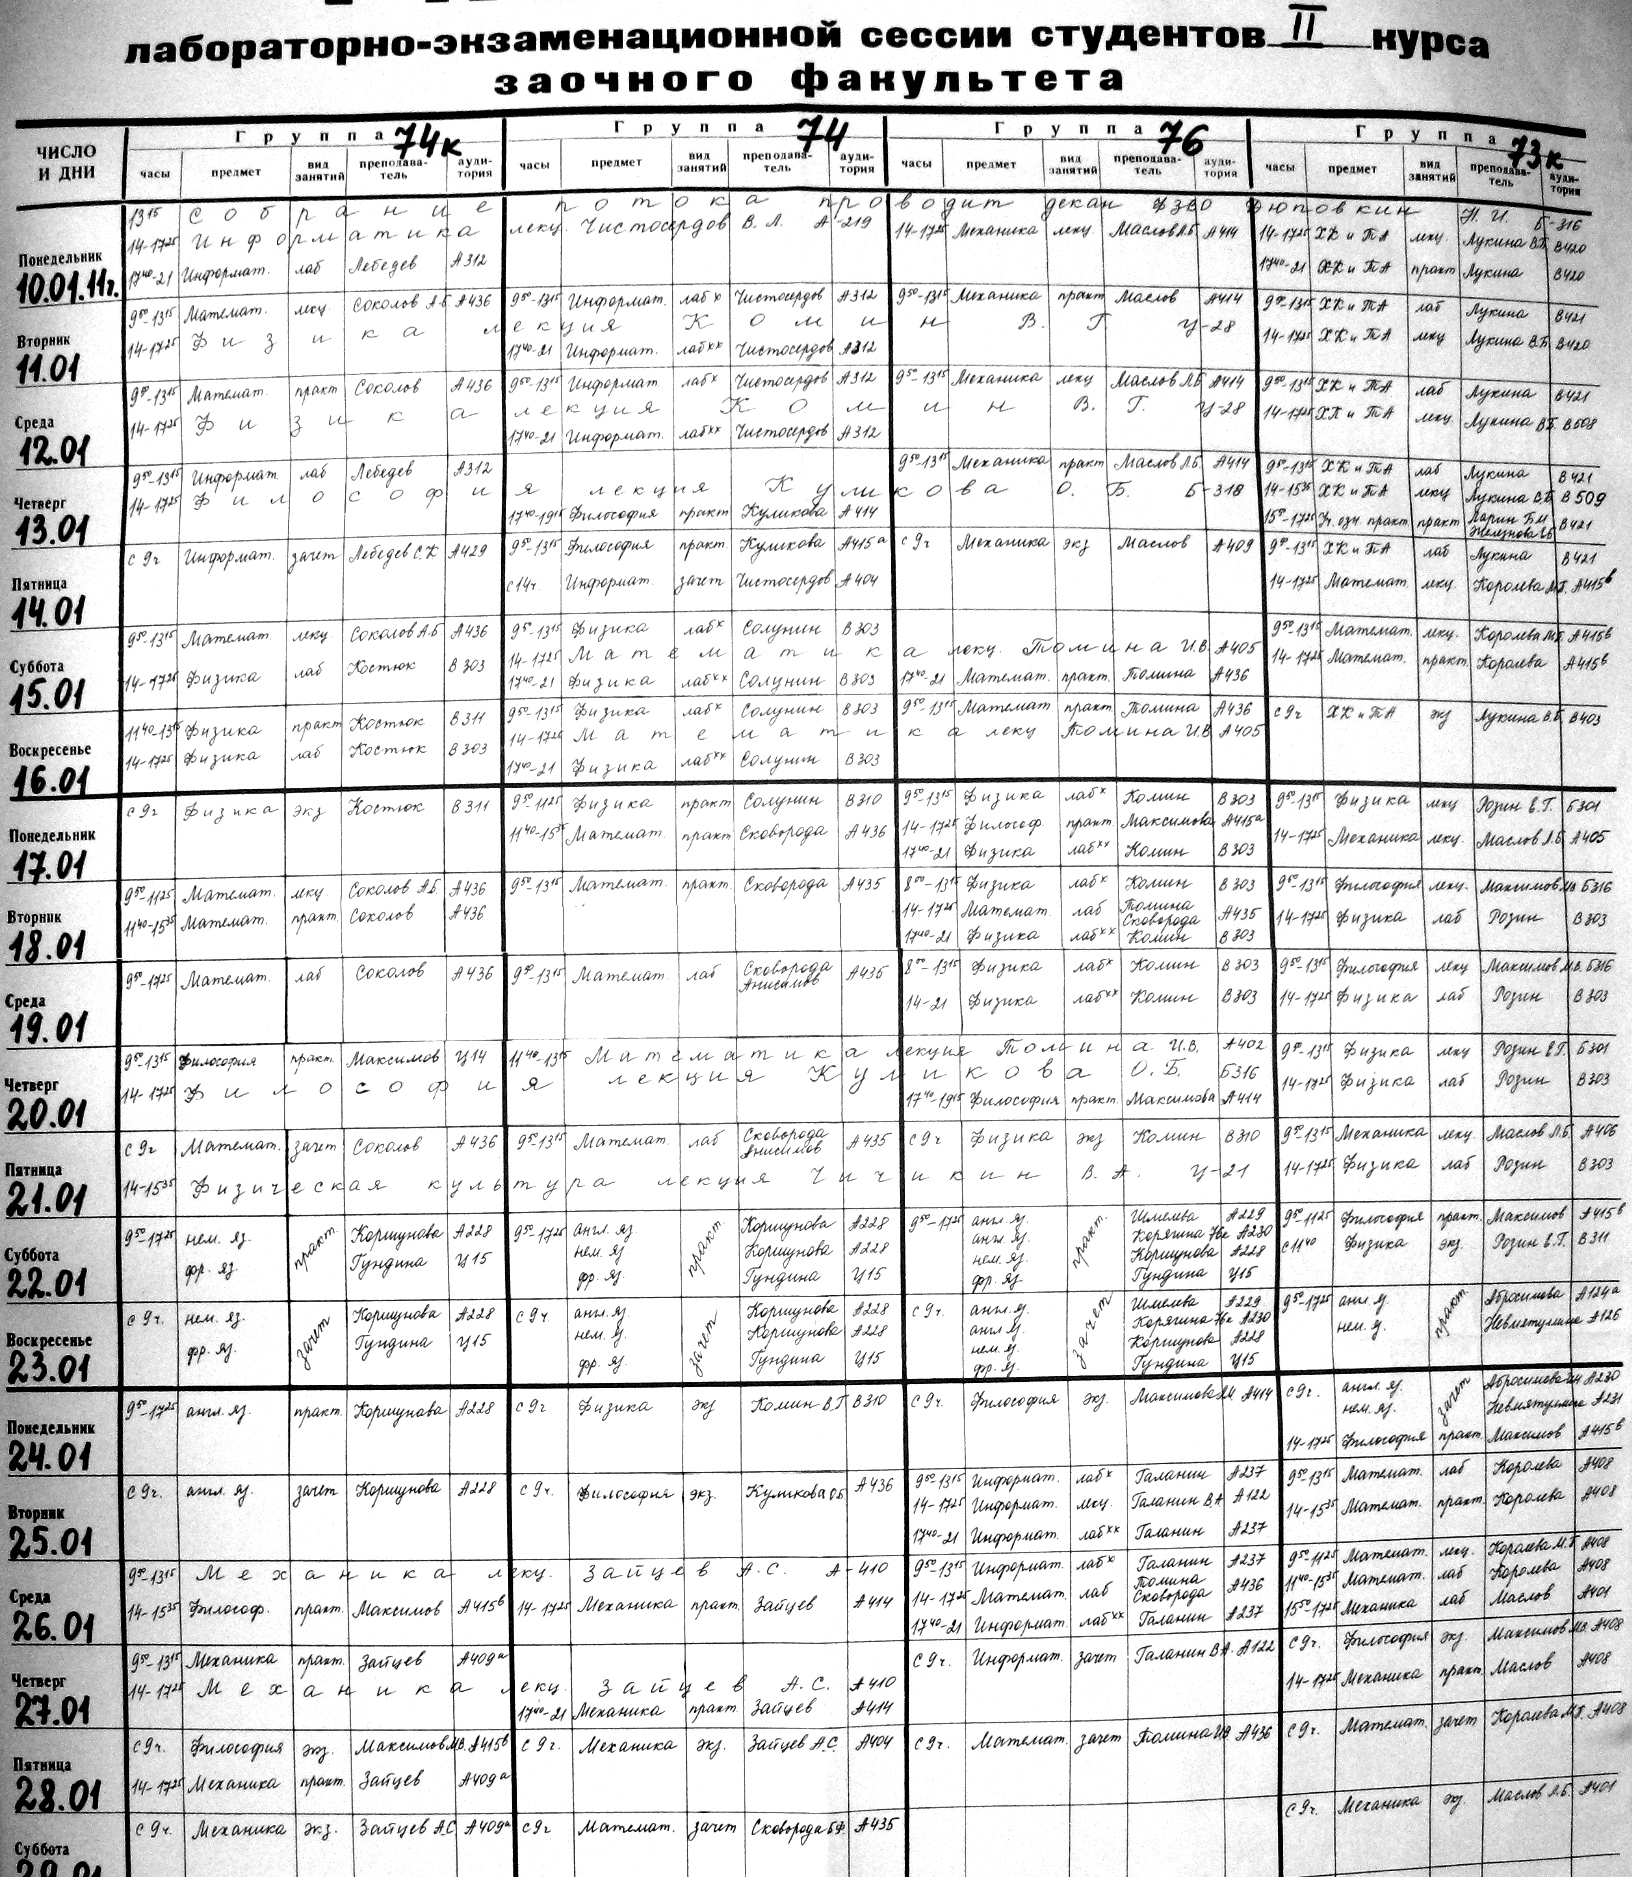 лабораторно-экзаменационной сессии студентов II курса
заочного факультета
ЧИСЛО И ДНИ
Группа 74к Группа 74 Группа 76 Группа 73к
часы предмет вид занятий преподаватель аудитория часы предмет вид занятий преподаватель аудитория часы предмет вид занятий преподаватель аудитория часы предмет вид занятий преподаватель аудитория
Понедельник 10.01.11г.
13¹⁵ Собрание потока проводит декан ФЗВО Дюповкин Н. И. Б-316
14-17²⁵ Информатика лекц. Чистосердов В. Л. А-219 14-17²⁵ Механика лекц Маслов Л.Б. А414 14-17²⁵ ХК и ТА лекц Лукина В.Б. В420
17⁴⁰-21 Информат. лаб Лебедев А312 17⁴⁰-21 ХК и ТА практ Лукина В420
Вторник 11.01
9⁵⁰-13¹⁵ Математ. лекц Соколов А.Б А436 9⁵⁰-13¹⁵ Информат. лабˣ Чистосердов А312 9⁵⁰-13¹⁵ Механика практ Маслов А414 9⁵⁰-13¹⁵ ХК и ТА лаб Лукина В421
14-17²⁵ Физика лекция Комин В. Г Ц-28 14-17²⁵ ХК и ТА лекц Лукина В.Б В420
17⁴⁰-21 Информат. лабˣˣ Чистосердов А312
Среда 12.01
9⁵⁰-13¹⁵ Математ. практ Соколов А436 9⁵⁰-13¹⁵ Информат. лабˣ Чистосердов А312 9⁵⁰-13¹⁵ Механика лекц Маслов Л.Б А414 9⁵⁰-13¹⁵ ХК и ТА лаб Лукина В421
14-17²⁵ Физика лекция Комин В. Г. Ц-28 14-17²⁵ ХК и ТА лекц Лукина В.Б. В508
17⁴⁰-21 Информат. лабˣˣ Чистосердов А312
Четверг 13.01
9⁵⁰-13¹⁵ Информат лаб Лебедев А312 9⁵⁰-13¹⁵ Механика практ Маслов Л.Б А414 9⁵⁰-13¹⁵ ХК и ТА лаб Лукина В421
14-17²⁵ Философия лекция Куликова О. Б. Б-318 14-15³⁵ ХК и ТА лекц Лукина В.Б В509
17⁴⁰-19¹⁵ Философия практ Куликова А414 15⁵⁰-17²⁵ Уч. озн практ практ Ларин Б.М Железнова В421
Пятница 14.01
с 9ч Информат. зачет Лебедев С.К А429 9⁵⁰-13¹⁵ Философия практ. Куликова А415ᵃ с 9ч Механика экз Маслов А409 9⁵⁰-13¹⁵ ХК и ТА лаб Лукина В421
с 14ч. Информат. зачет Чистосердов А404 14-17²⁵ Математ. лекц. Королева М.Г. А415ᵇ
Суббота 15.01
9⁵⁰-13¹⁵ Математ лекц Соколов А.Б А436 9⁵⁰-13¹⁵ Физика лабˣ Солунин В303 9⁵⁰-13¹⁵ Математ. лекц. Королева М.Г. А415ᵇ
14-17²⁵ Физика лаб Костюк В303 14-17²⁵ Математика лекц. Томина И.В. А405 14-17²⁵ Математ. практ. Королева А415ᵇ
17⁴⁰-21 Физика лабˣˣ Солунин В303 17⁴⁰-21 Математ. практ. Томина А436
Воскресенье 16.01
11⁴⁰-13¹⁵ Физика практ Костюк В311 9⁵⁰-13¹⁵ Физика лабˣ Солунин В303 9⁵⁰-13¹⁵ Математ практ. Томина А436 с 9ч ХК и ТА экз Лукина В.Б. В403
14-17²⁵ Физика лаб Костюк В303 14-17²⁵ Математика лекц Томина И.В. А405
17⁴⁰-21 Физика лабˣˣ Солунин В303
Понедельник 17.01
с 9ч Физика экз Костюк В311 9⁵⁰-11²⁵ Физика практ Солунин В310 9⁵⁰-13¹⁵ Физика лабˣ Комин В303 9⁵⁰-13¹⁵ Физика лекц Розин Е.Г. Б301
11⁴⁰-15³⁵ Математ. практ Сковорода А436 14-17²⁵ Философ практ Максимова А415ᵃ 14-17²⁵ Механика лекц. Маслов Л.Б А405
17⁴⁰-21 Физика лабˣˣ Комин В303
Вторник 18.01
9⁵⁰-11²⁵ Математ. лекц Соколов А.Б. А436 9⁵⁰-13¹⁵ Математ. практ. Сковорода А435 8⁰⁰-13¹⁵ Физика лабˣ Комин В303 9⁵⁰-13¹⁵ Философия лекц. Максимов М.В. Б316
11⁴⁰-15³⁵ Математ. практ. Соколов А436 14-17²⁵ Математ. лаб Томина Сковорода А435 14-17²⁵ Физика лаб Розин В303
17⁴⁰-21 Физика лабˣˣ Комин В303
Среда 19.01
9⁵⁰-17²⁵ Математ. лаб Соколов А436 9⁵⁰-13¹⁵ Математ. лаб Сковорода Анисимов А435 8⁰⁰-13¹⁵ Физика лабˣ Комин В303 9⁵⁰-13¹⁵ Философия лекц Максимов М.В. Б316
14-21 Физика лабˣˣ Комин В303 14-17²⁵ Физика лаб Розин В303
Четверг 20.01
9⁵⁰-13¹⁵ Философия практ. Максимов Ц14 11⁴⁰-13¹⁵ Математика лекция Томина И.В. А402 9⁵⁰-13¹⁵ Физика лекц Розин Е.Г. Б301
14-17²⁵ Философия лекция Куликова О.Б. Б316 14-17²⁵ Физика лаб Розин В303
17⁴⁰-19¹⁵ Философия практ. Максимова А414
Пятница 21.01
с 9ч Математ. зачет Соколов А436 9⁵⁰-13¹⁵ Математ. лаб Сковорода Анисимов А435 с 9ч Физика экз Комин В310 9⁵⁰-13¹⁵ Механика лекц. Маслов Л.Б. А406
14-15³⁵ Физическая культура лекция Чичикин В. А. Ц-21 14-17²⁵ Физика лаб Розин В303
Суббота 22.01
9⁵⁰-17²⁵ нем. яз. практ. Коршунова А228 9⁵⁰-17²⁵ англ. яз. практ Коршунова А228 9⁵⁰-17²⁵ англ. яз. практ. Шмелева А229 9⁵⁰-11²⁵ Философия практ. Максимов А415ᵇ
нем. яз Коршунова А228 англ. яз. Корягина 76к А230 с 11⁴⁰ Физика экз. Розин Е.Г. В311
фр. яз. Гундина Ц15 фр. яз. Гундина Ц15 нем. яз. Коршунова А228
фр. яз. Гундина Ц15
Воскресенье 23.01
с 9ч. нем. яз. зачет Коршунова А228 с 9ч. англ. яз зачет Коршунова А228 с 9ч. англ. яз. зачет Шмелева А229 9⁵⁰-17²⁵ англ. яз. практ. Абросимова А124а
нем. яз. Коршунова А228 англ яз. Корягина 76к А230 нем. яз. А126
фр. яз. Гундина Ц15 фр. яз. Гундина Ц15 нем. яз. Коршунова А228
фр. яз. Гундина Ц15
Понедельник 24.01
9⁵⁰-17²⁵ англ. яз. практ. Коршунова А228 с 9ч Физика экз Комин В.Г В310 с 9ч. Философия экз. Максимова А414 с 9ч. англ. яз. зачет Абросимова А230
нем. яз. А231
14-17²⁵ Философия практ. Максимов А415ᵇ
Вторник 25.01
с 9ч. англ. яз. зачет Коршунова А228 с 9ч. Философия экз. Куликова О.Б. А436 9⁵⁰-13¹⁵ Информат. лабˣ Галанин А237 9⁵⁰-13¹⁵ Математ. лаб Королева А408
14-17²⁵ Информат. лекц. Галанин В.А А122 14-15³⁵ Математ. практ. Королева А408
17⁴⁰-21 Информат. лабˣˣ Галанин А237
Среда 26.01
9⁵⁰-13¹⁵ Механика лекц. Зайцев А.С. А-410 9⁵⁰-13¹⁵ Информат. лабˣ Галанин А237 9⁵⁰-11²⁵ Математ. лекц. Королева М.Г. А408
14-15³⁵ Философ. практ. Максимов А415ᵇ 14-17²⁵ Механика практ. Зайцев А414 14-17²⁵ Математ. лаб Томина Сковорода А436 11⁴⁰-15³⁵ Математ. лаб Королева А408
17⁴⁰-21 Информат. лабˣˣ Галанин А237 15⁵⁰-17²⁵ Механика лаб Маслов А401
Четверг 27.01
9⁵⁰-13¹⁵ Механика практ. Зайцев А409ᵃ с 9ч. Информат. зачет Галанин В.А. А122 с 9ч. Философия экз. Максимов М.В. А408
14-17²⁵ Механика лекц. Зайцев А.С. А410 14-17²⁵ Механика практ. Маслов А408
17⁴⁰-21 Механика практ. Зайцев А414
Пятница 28.01
с 9ч. Философия экз. Максимов М.В. А415ᵇ с 9ч. Механика экз. Зайцев А.С. А404 с 9ч. Математ. зачет Томина И.В. А436 с 9ч. Математ. зачет Королева М.Г. А408
14-17²⁵ Механика практ. Зайцев А409ᵃ
Суббота 29.01
с 9ч. Механика экз. Зайцев А.С А409ᵃ с 9ч Математ. зачет Сковорода Б.Ф. А435 с 9ч. Механика экз. Маслов Л.Б. А401